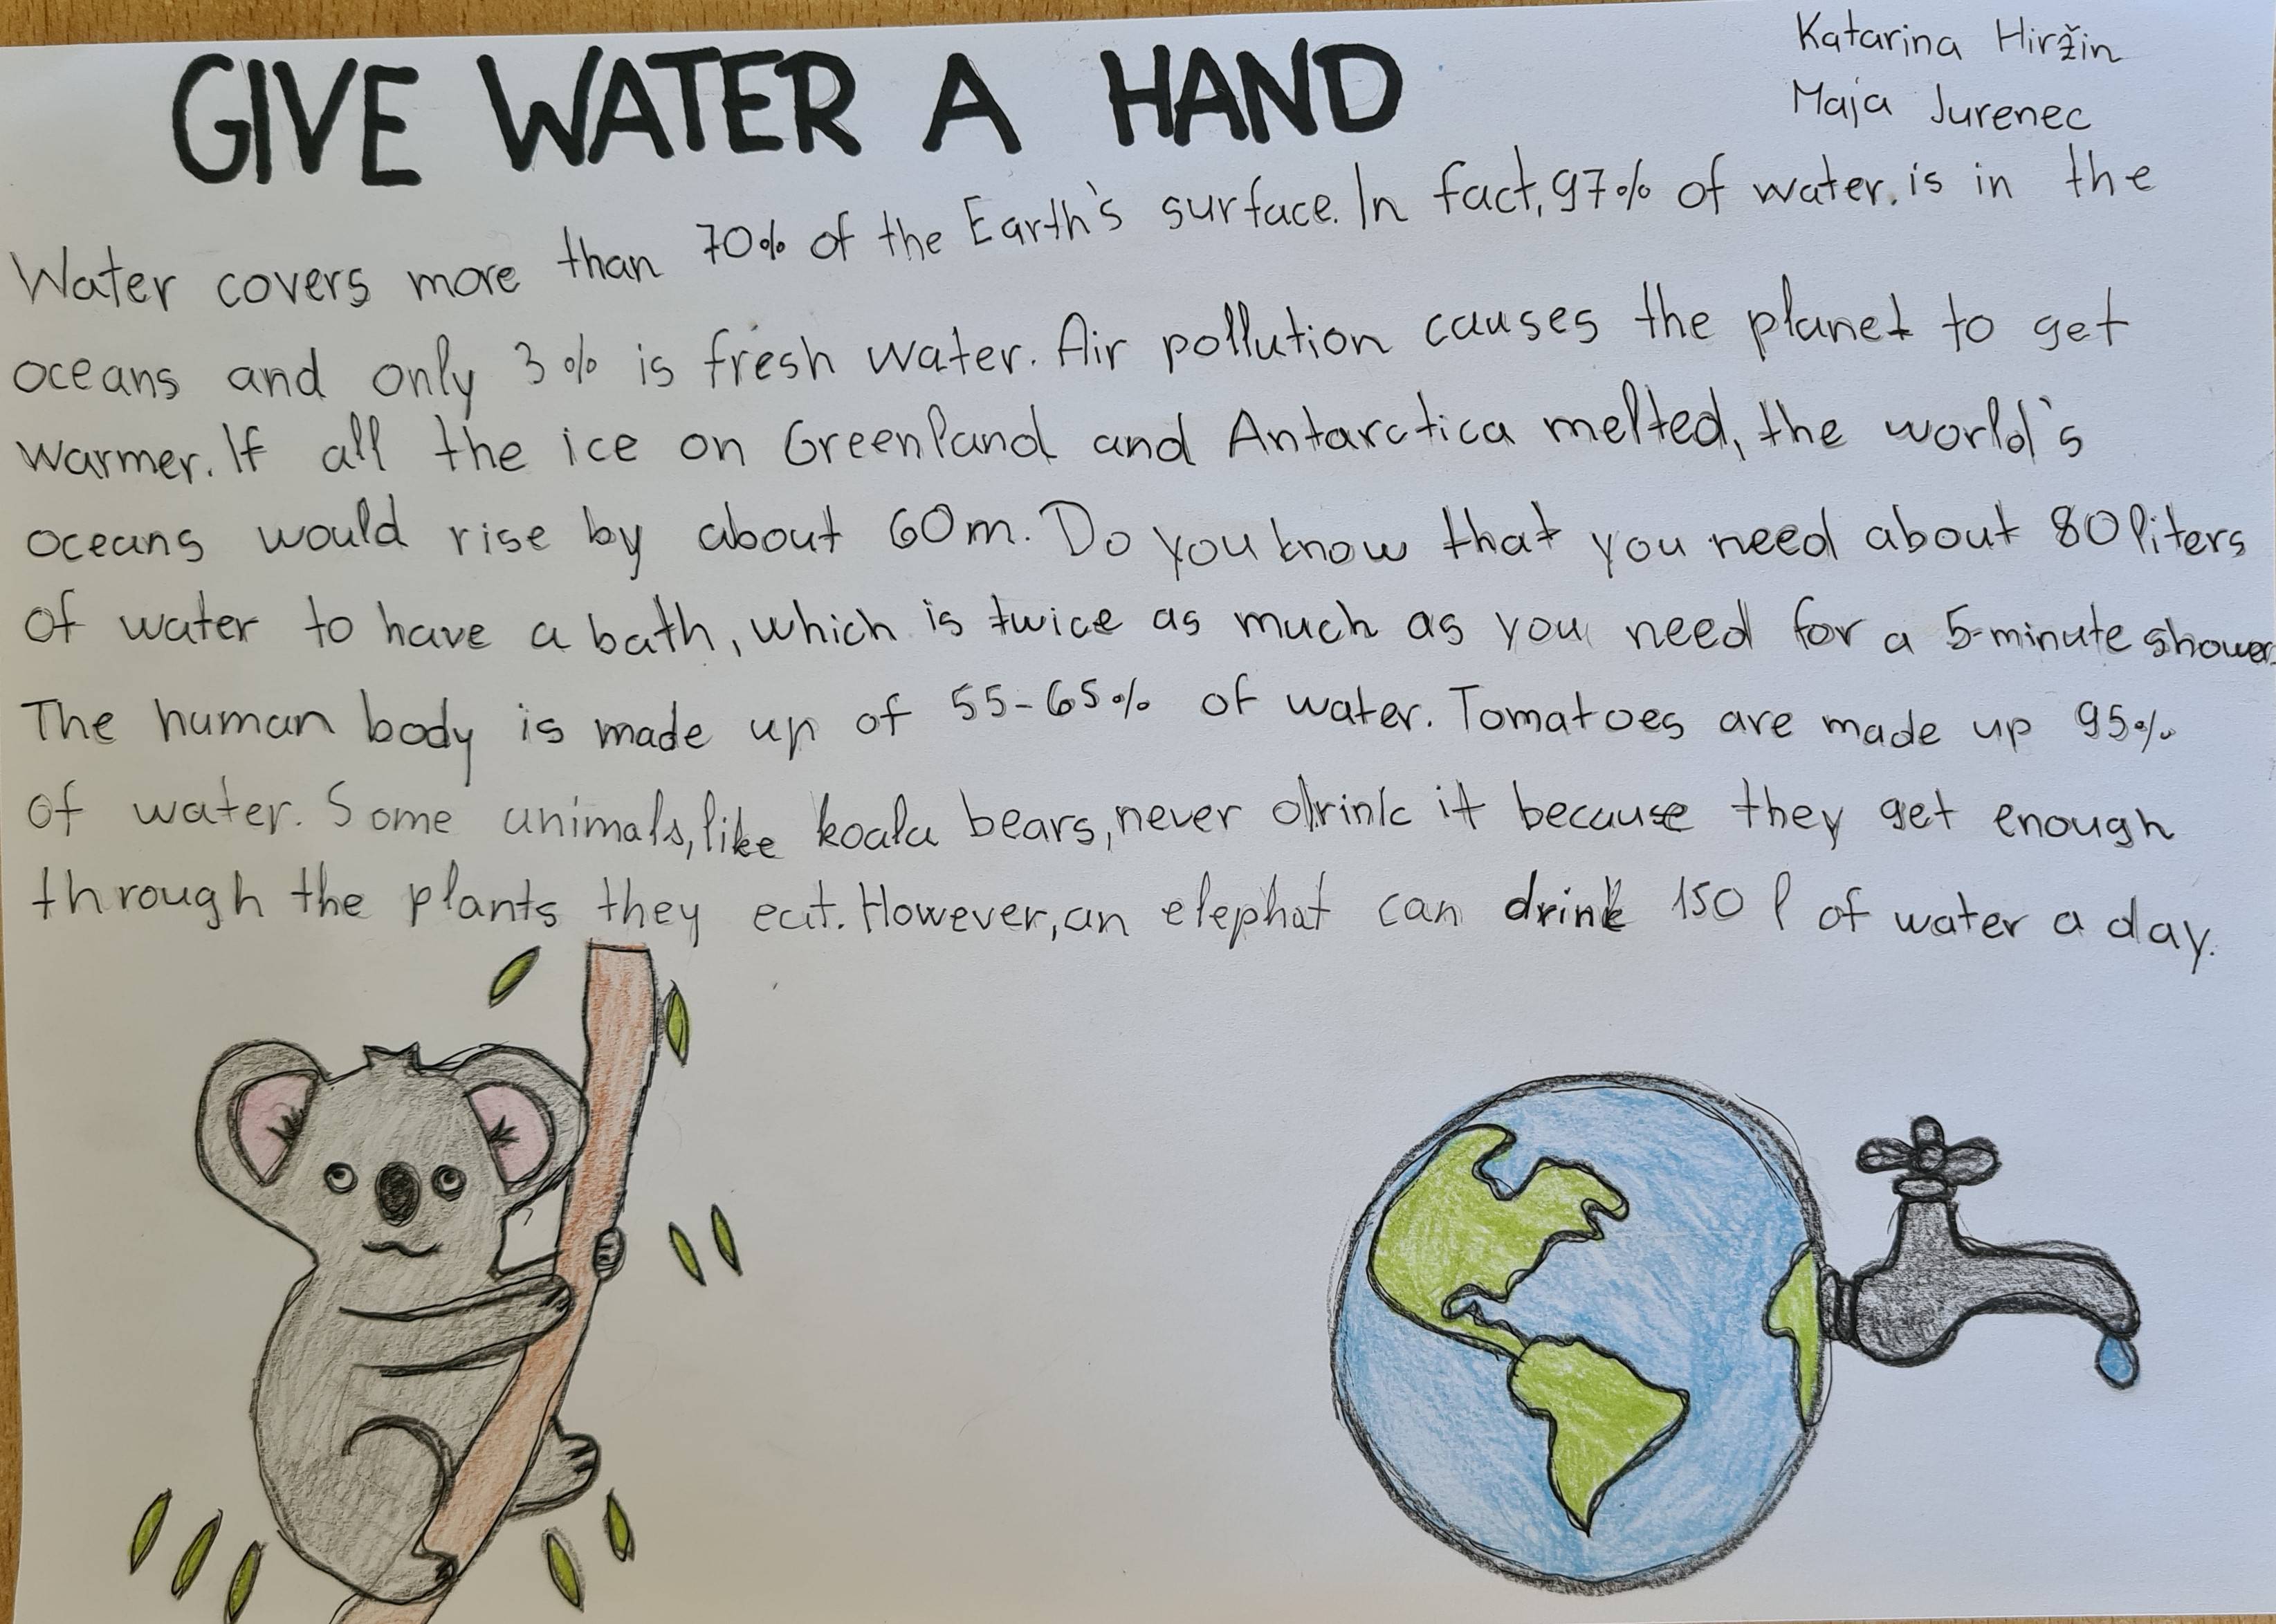 GIVE WATER A HAND
Katarina Hiržin
Maja Jurenec
Water covers more than 70% of the Earth's surface. In fact, 97% of water is in the
oceans and only 3% is fresh water. Air pollution causes the planet to get
warmer. If all the ice on Greenland and Antarctica melted, the world's
oceans would rise by about 60m. Do you know that you need about 80 liters
of water to have a bath, which is twice as much as you need for a 5-minute shower.
The human body is made up of 55-65% of water. Tomatoes are made up 95%
of water. Some animals, like koala bears, never drink it because they get enough
through the plants they eat. However, an elephat can drink 150 l of water a day.